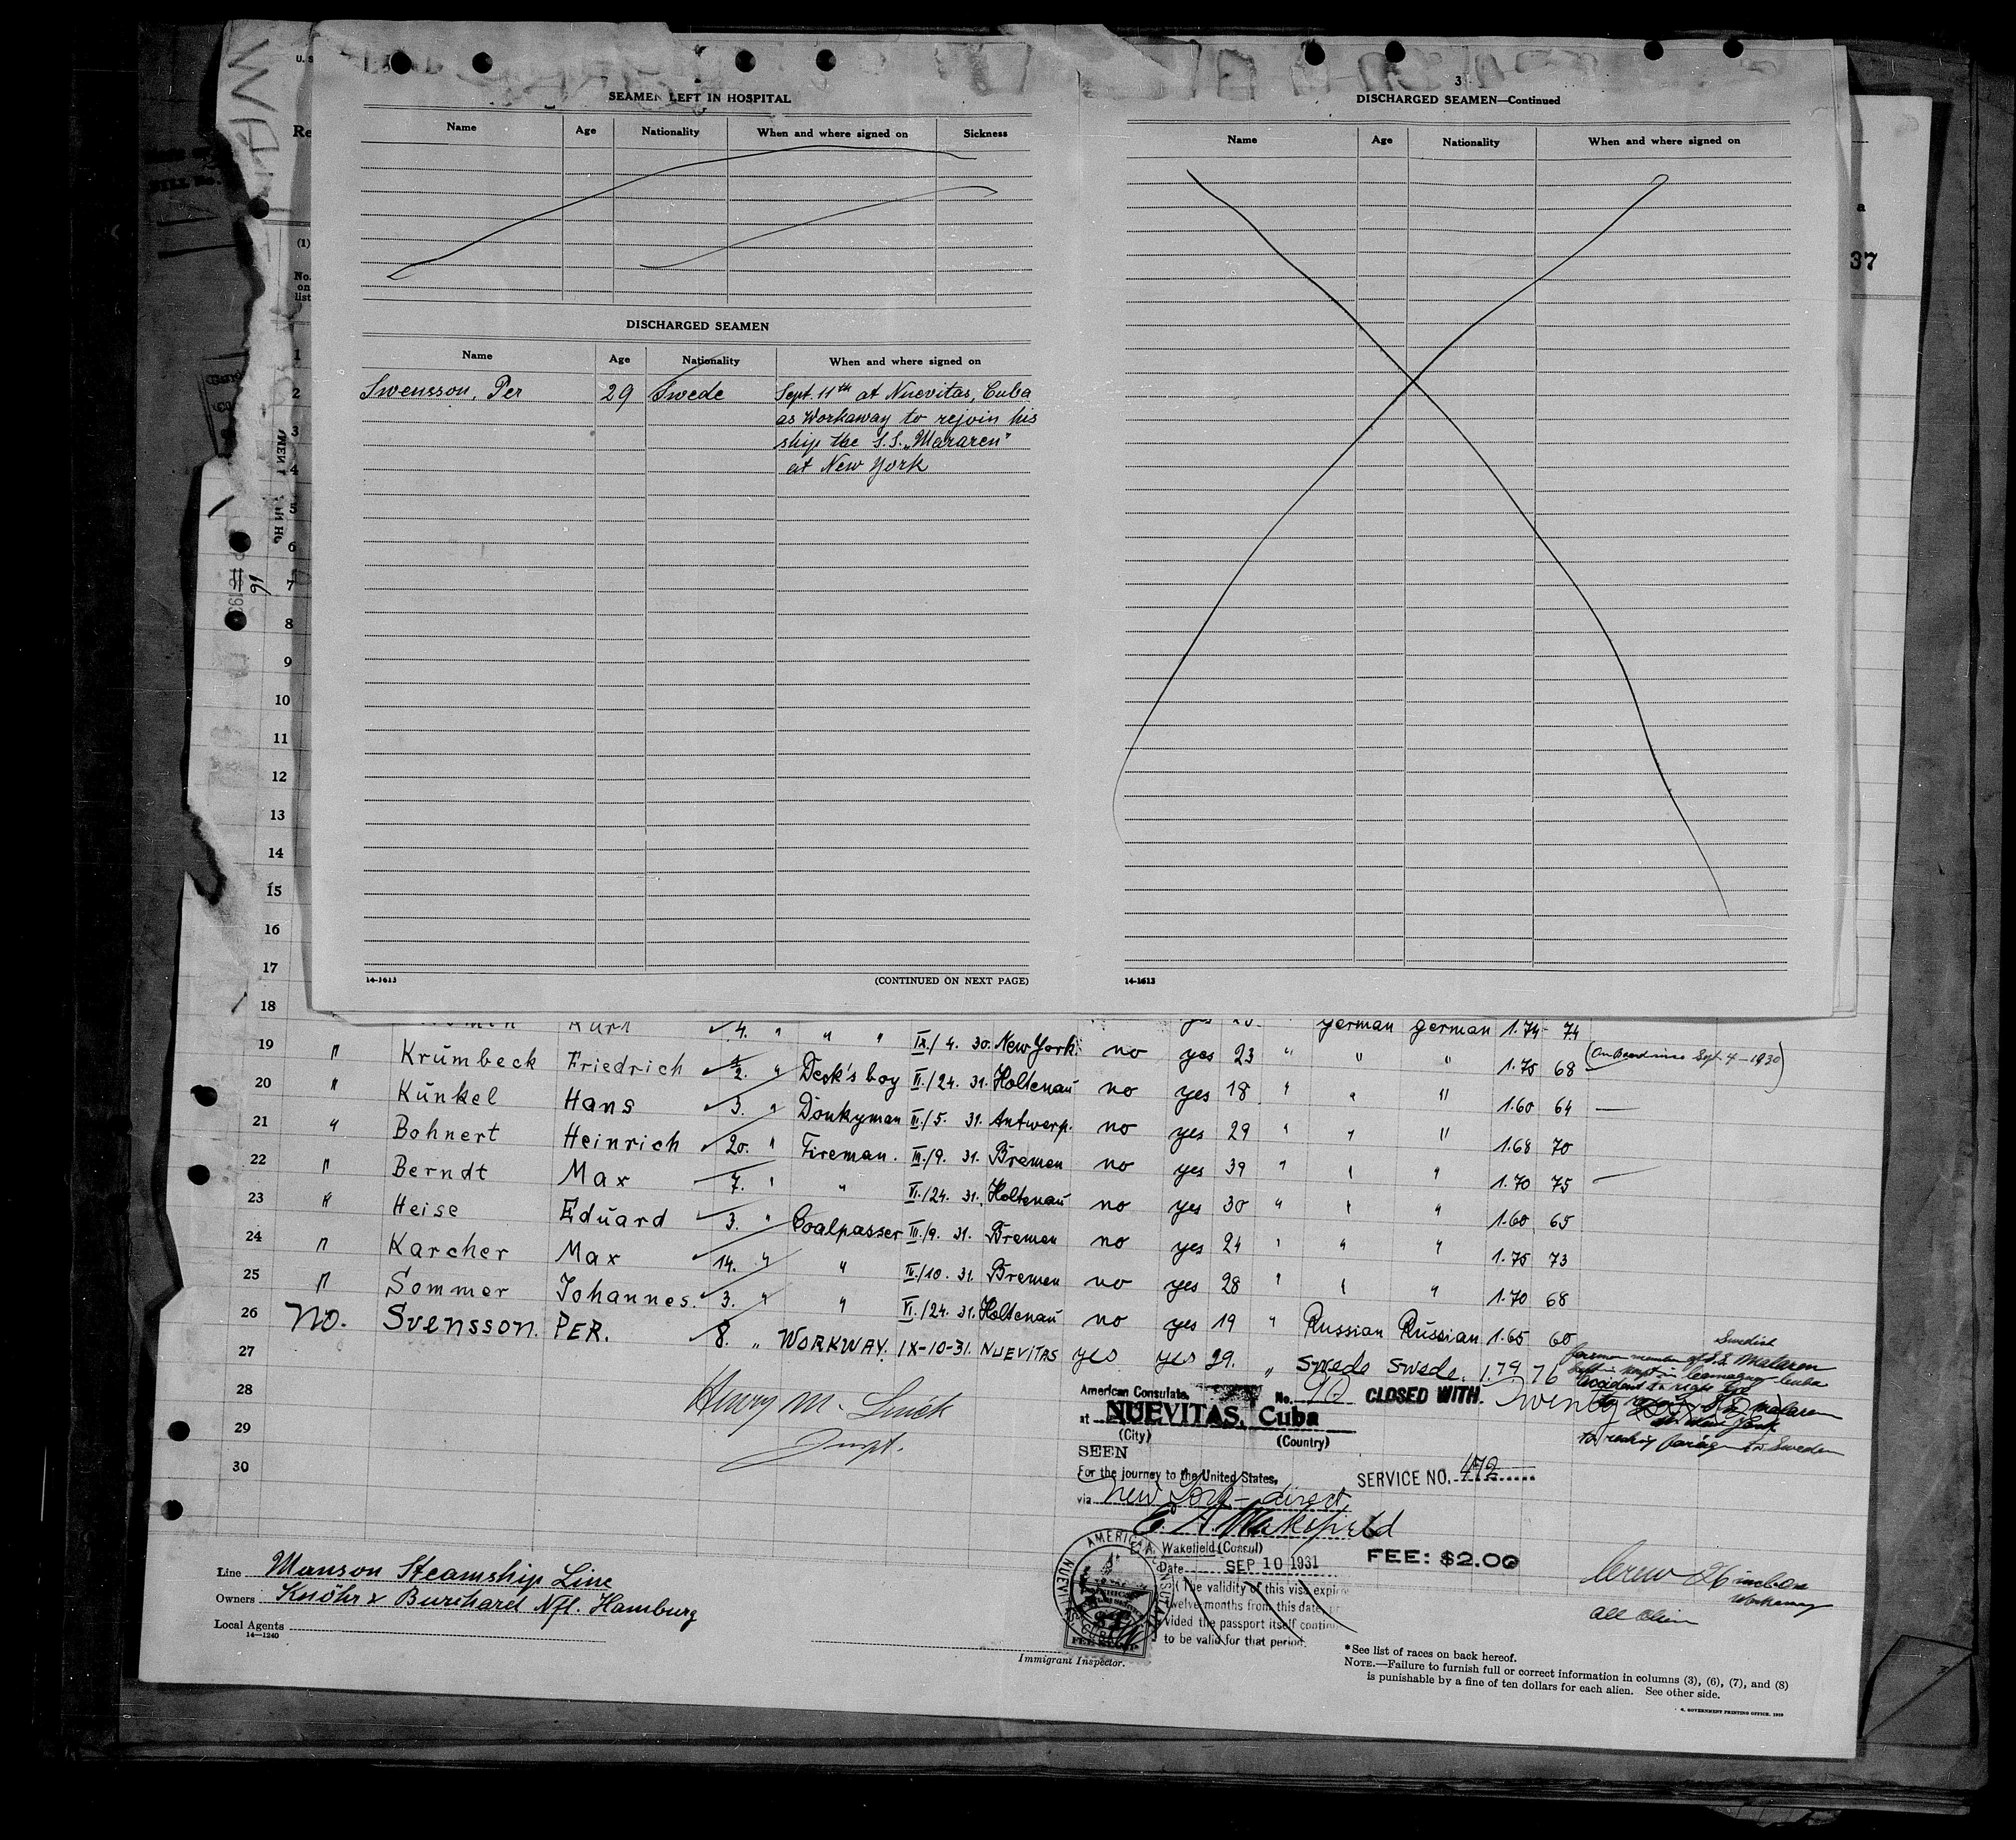 SEAMEN LEFT IN HOSPITAL
Name Age Nationality When and where signed on Sickness
DISCHARGED SEAMEN
Name Age Nationality When and where signed on
Swensson, Per 29 Swede Sept. 11th at Nuevitas, Cuba
as Workaway to rejoin his
ship the S.S. „Mararen"
at New York
14-1613 (CONTINUED ON NEXT PAGE)
3
DISCHARGED SEAMEN—Continued
Name Age Nationality When and where signed on
14-1613
37
(1)
No.
on
list
1
2
3
4
5
6
7
8
9
10
11
12
13
14
15
16
17
18 Kurt 4. " " " IX./4. 30. New York. german german 1.74 74
19 " Krumbeck Friedrich 2. " Deck's boy II./24. 31. Holtenau no yes 23 " " " 1.75 68 (On Board since Sept 4-1930)
20 " Künkel Hans 3. " Donkyman III./5. 31. Antwerp. no yes 18 " " " 1.60 64
21 " Bohnert Heinrich 20. " Fireman. III./9. 31. Bremen no yes 29 " " " 1.68 70
22 " Berndt Max 7. " " VI./24. 31. Holtenau no yes 39 " " " 1.70 75
23 " Heise Eduard 3. " Coalpasser III./9. 31. Bremen no yes 30 " " " 1.60 65
24 " Karcher Max 14. " " II./10. 31. Bremen no yes 24 " " " 1.75 73
25 " Sommer Johannes. 3. " " VI./24. 31. Holtenau no yes 28 " " " 1.70 68
26 No. Svensson. PER. 8. " WORKWAY. IX-10-31. NUEVITAS no yes 19 " Russian Russian 1.65 60
27 yes yes 29. " Swede Swede. 1.79 76
28
29
30
Swedish
former member of S.S. Mataren
left in hospt in Camaguey Cuba
accident to right
to rejoin S.S. Mataren
at New York
to Sweden
Henry M. Linck
Inspt.
American Consulate, No. CLOSED WITH Twenty
at NUEVITAS, Cuba
(City) (Country)
SEEN
For the journey to the United States,
via New York - direct
SERVICE NO. 472
E. A. Wakefield
E. A. Wakefield (Consul)
Date SEP 10 1931
FEE: $2.00
(The validity of this visa expires
twelve months from this date, pr
vided the passport itself contin
to be valid for that period.
AMERICAN CONSULATE NUEVITAS CUBA
Crew 26 incl one
workaway
all alien
Line Munson Steamship Line
Owners Knöhr & Burchard Nfl. Hamburg
Local Agents
14-1240
Immigrant Inspector.
*See list of races on back hereof.
NOTE.—Failure to furnish full or correct information in columns (3), (6), (7), and (8)
is punishable by a fine of ten dollars for each alien. See other side.